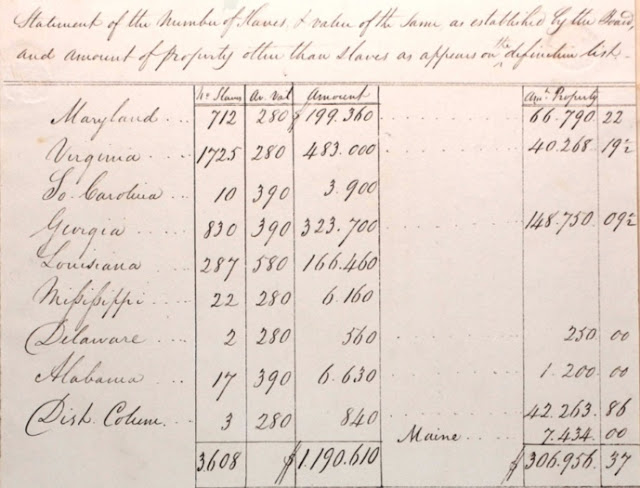 Statement of the Number of Slaves & value of the same as established by the Board,
and amount of Property other than Slaves as appears on the definitive list.
No Slaves Av. Val Amount Amt. Property
Maryland .... 712 280 $199.360 ........ 66.790 22
Virginia .... 1725 280 483.000 ........ 40.268 19½
So. Carolina ... 10 390 3.900
Georgia .... 830 390 323.700 ........ 148.750 09½
Louisiana ... 287 580 166.460
Missisippi ... 22 280 6.160
Delaware ... 2 280 560 ........ 250 00
Alabama ... 17 390 6.630 ........ 1.200 00
Dist. Colum. ... 3 280 840 ........ 42.263 86
Maine ...... 7.434 00
3.608 $1.190.610 $306.956 37